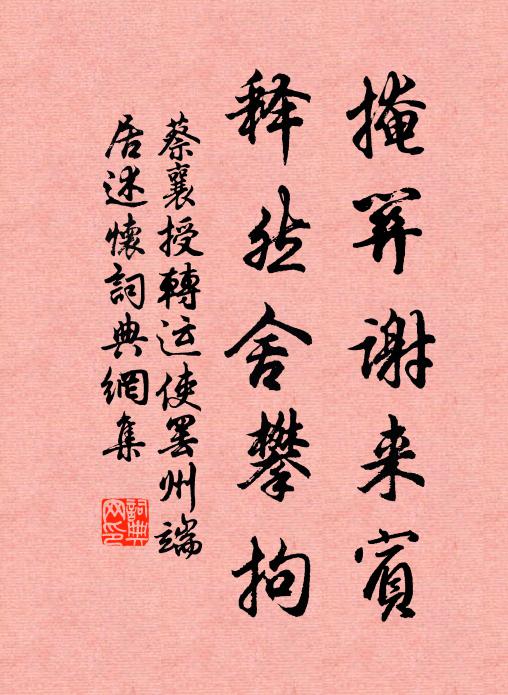 掩關謝来賓
释然舍攀拘
蔡襄授轉运使罢州端
居述懷詞典網集
詞典
网印